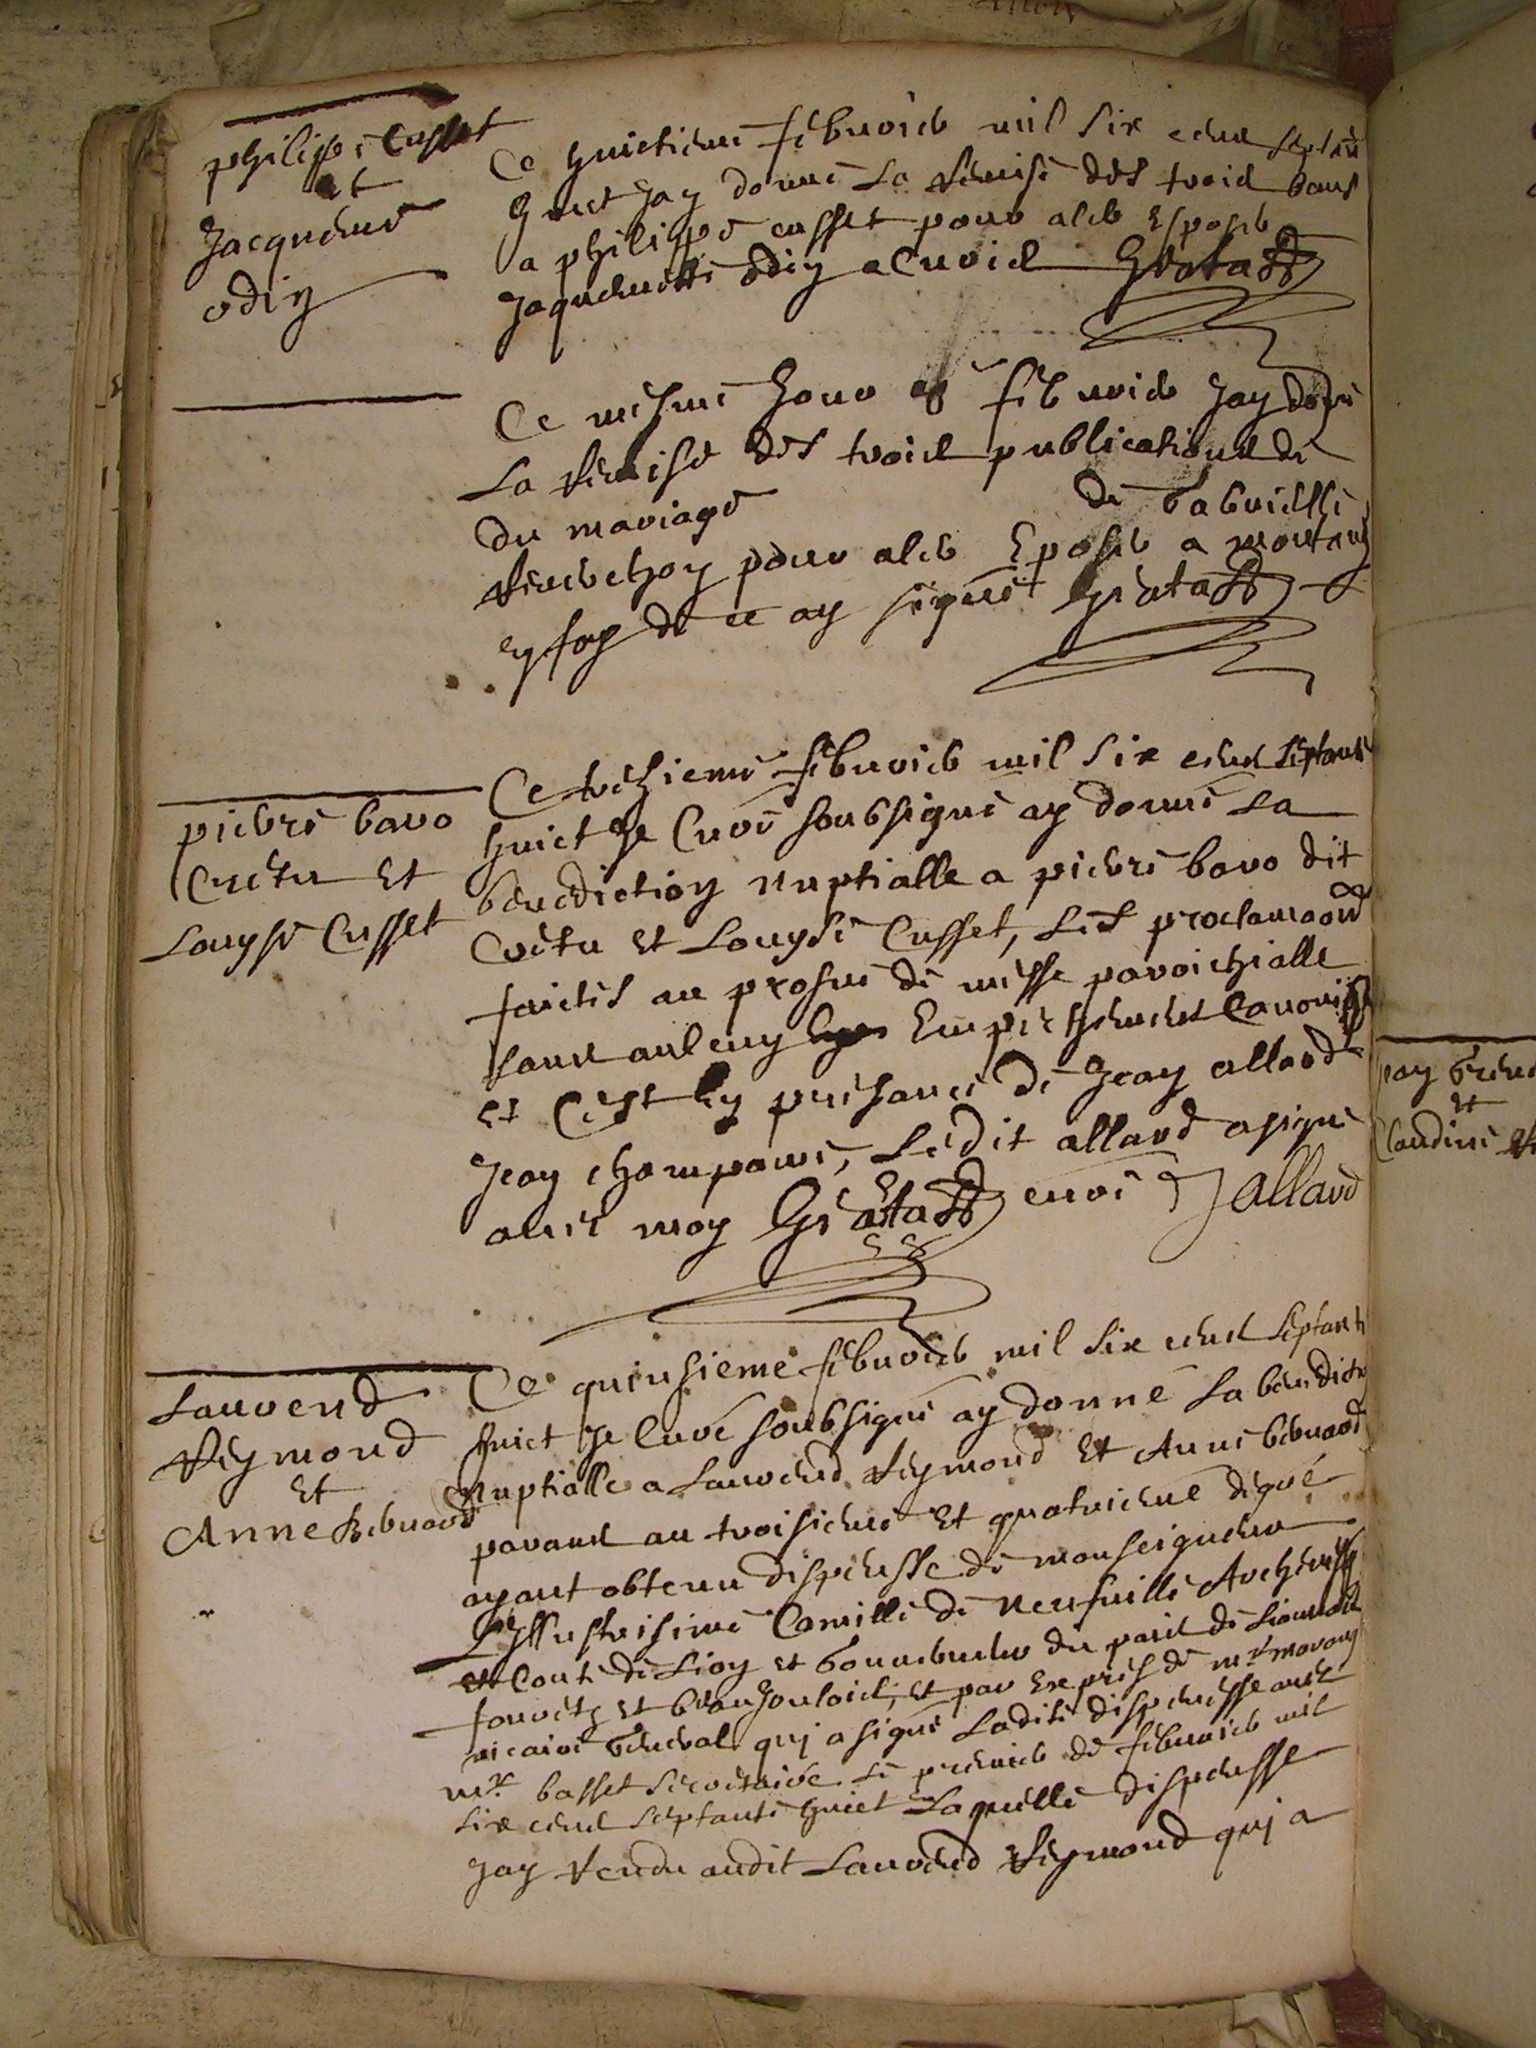 philippe Cusset
et
Jacqueme
odin
Ce huictieme febvrier mil six cens septante
huict Jay donné La Remise des trois bans
a philippe cusset pour aler Esposer
Jaquemette odin a Curis Gratass
Ce mesme Jour 8 febvrier Jay doné
La Remise des trois publications de
du mariage de Gabrielle
pour aler Eposer a montany
en foy de ce ay signé Gratass
pierre baro
Cretu Et
Louyse Cusset
Ce trezieme febvrier mil six cens septante
huict Je Curé soubsigné ay donné La
benediction Nuptialle a pierre baro dit
Cretu Et Louyse Cusset, Les proclamaons
faictes au prosne de messe paroichialle
sans aulcun Empeschement Canonique
et C'est En presance de Jean allard
Jean champave, Ledit allard a signé
avec moy Gratass curé J allard
Laurend
Reymond
Et
Anne Bebrard
Ce quinsieme febvrier mil six cens septante
huict Je Curé soubsigné ay donné La benediction
Nuptialle a Laurend Reymond Et Anne bebrard
parans au troisieme Et quatrieme degré
ayant obtenu dispensse de monseigneur
L'Illustrisime Camille de Neufville Archevesq
et Conte de Lion et Gouverneur du pais de Lionnois
forests et beauJoulois, et par Exprés de mr moranj
vicaire General qui a signé Ladite dispensse avec
mr. basset secretaire Le premier de febvrier mil
six cens septante huict Laquelle dispensse
Jay Rendu audit Laurend Reymond qui a
Jean
et
Claudine